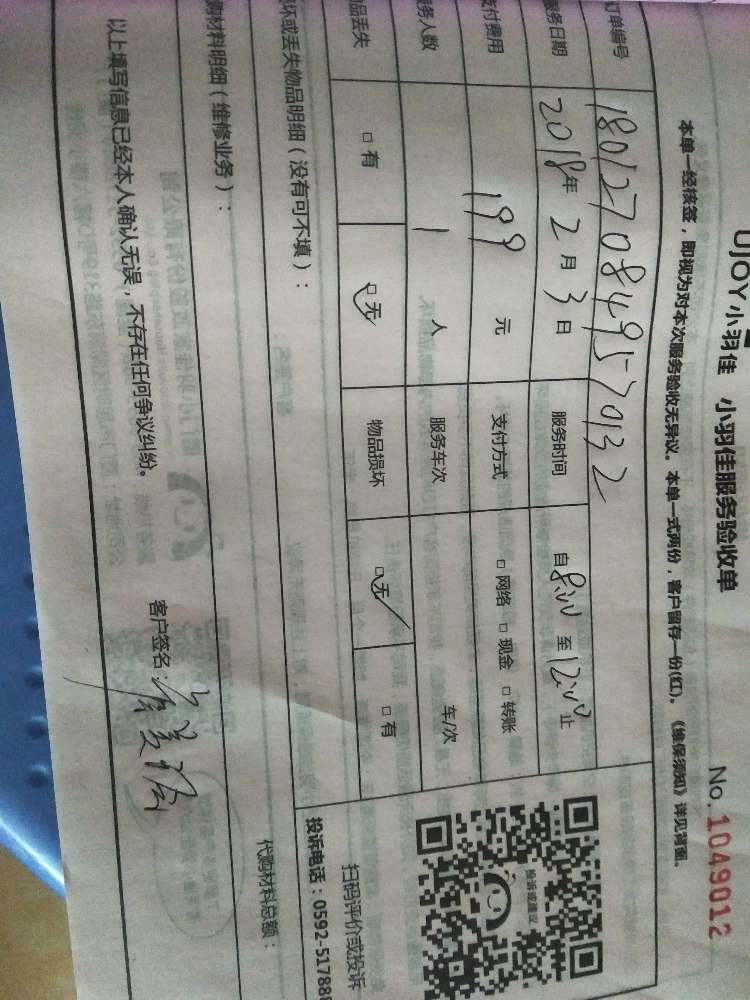 UJOY小羽佳 小羽佳服务验收单 No.1049012
本单一经核签，即视为对本次服务验收无异议。本单一式两份，客户留存一份(红)。《维保须知》详见背面。
订单编号 1801270849570132
服务日期 2018年2月3日 服务时间 自8:00至12:00止
支付费用 199元 支付方式 □网络 □现金 □转账
务人数 1人 服务车次 车/次
品丢失 □有 □无 物品损坏 □无 □有
坏或丢失物品明细（没有可不填）：
购材料明细（维修业务）：
代购材料总额：
以上填写信息已经本人确认无误，不存在任何争议纠纷。
客户签名：
投诉或建议
扫码评价或投诉
投诉电话：0592-517888